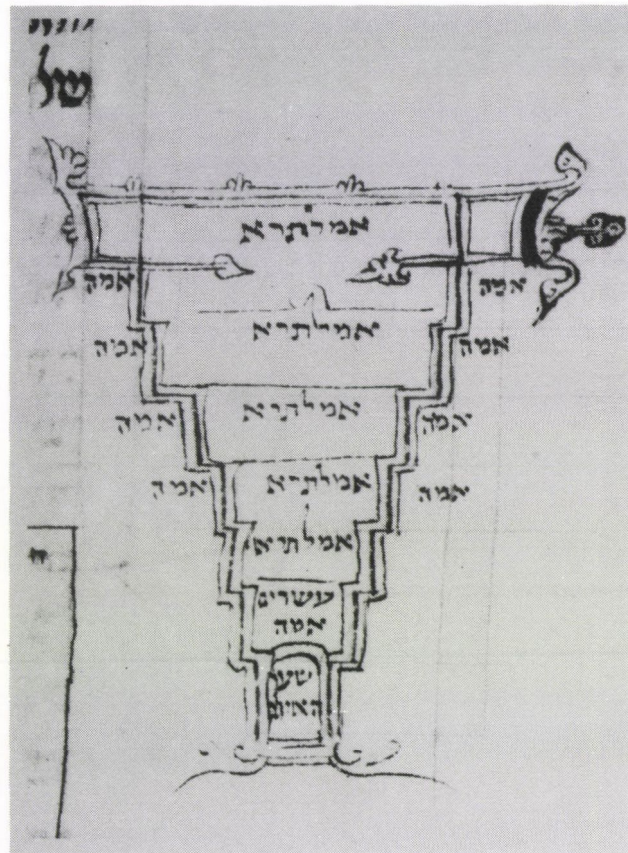 של
אמלתרא
אמה אמה
אמלתרא
אמה אמה
אמלתרא
אמה אמה
אמלתרא
אמה אמה
אמלתרא
עשרים
אמה
שער